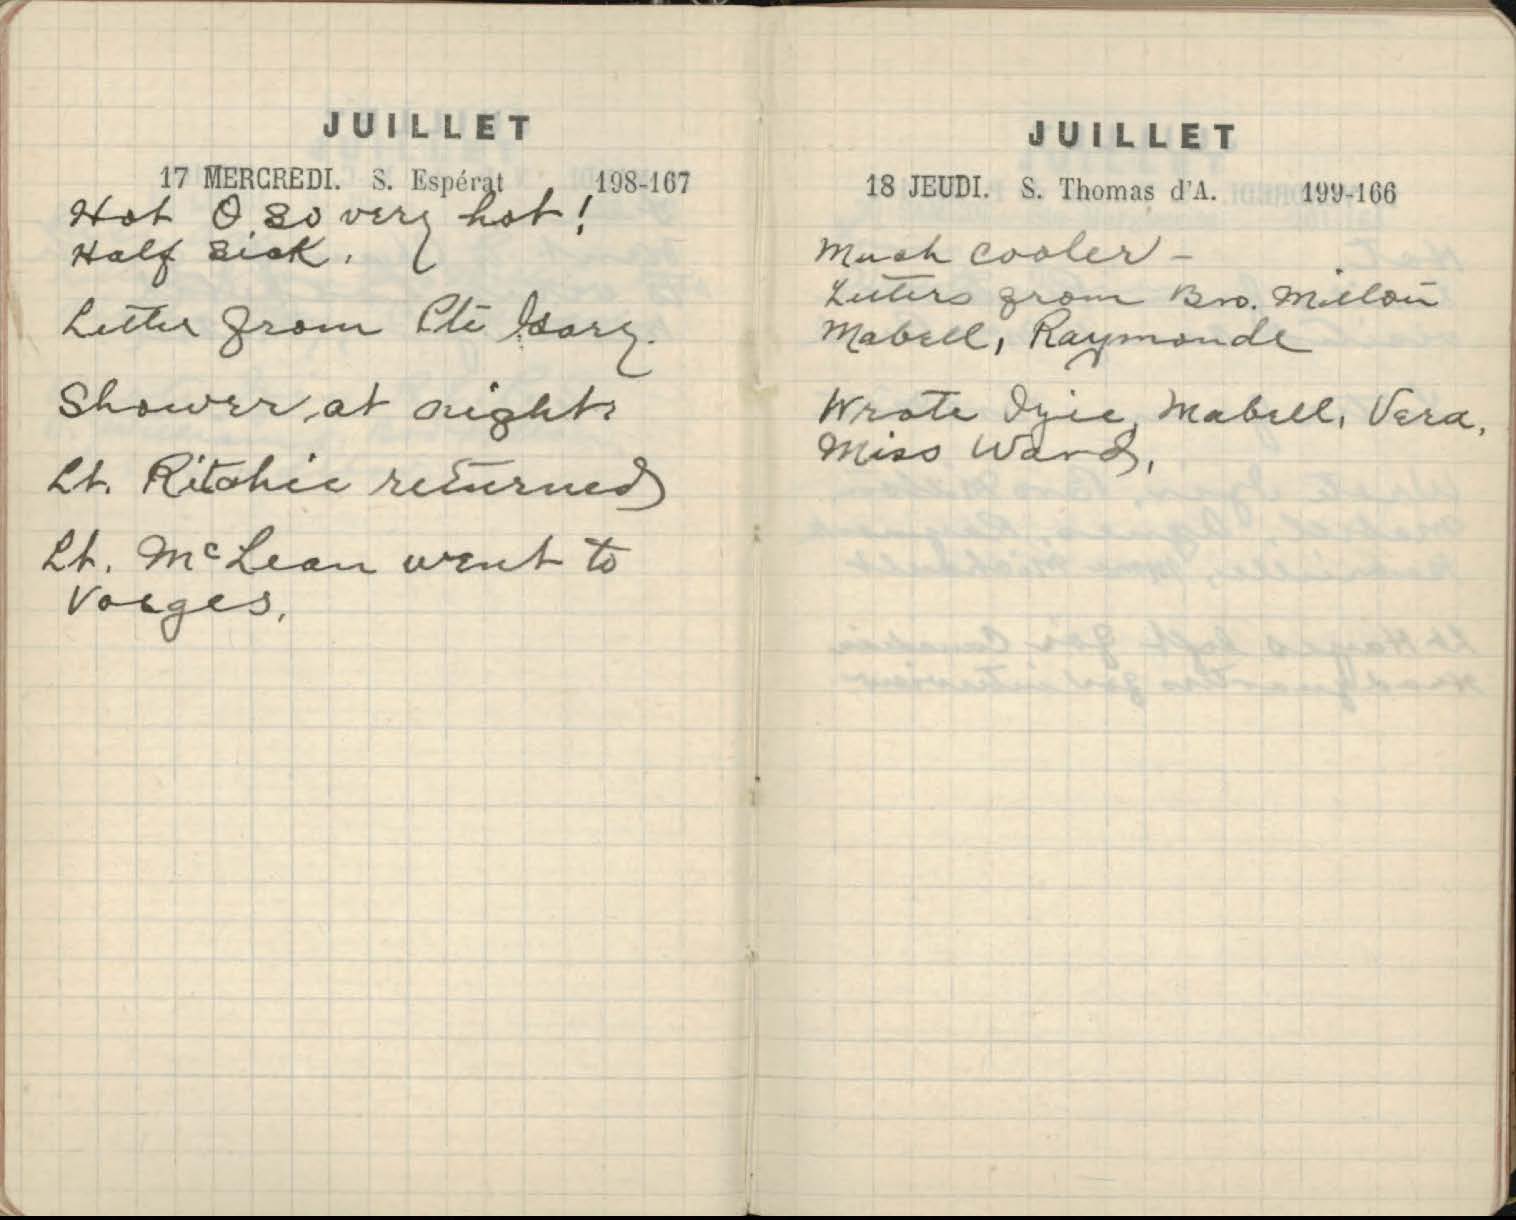 JUILLET
17 MERCREDI. S. Espérat 198-167
Hot O so very hot!
Half sick.
Letter from Pte
Shower at night.
Lt. Ritchie returned
Lt. McLean went to
Vosges.
JUILLET
18 JEUDI. S. Thomas d'A. 199-166
Much cooler -
Letters from Bro. Milton
Mabell, Raymonde
Wrote Izie, Mabell, Vera,
Miss Ward,